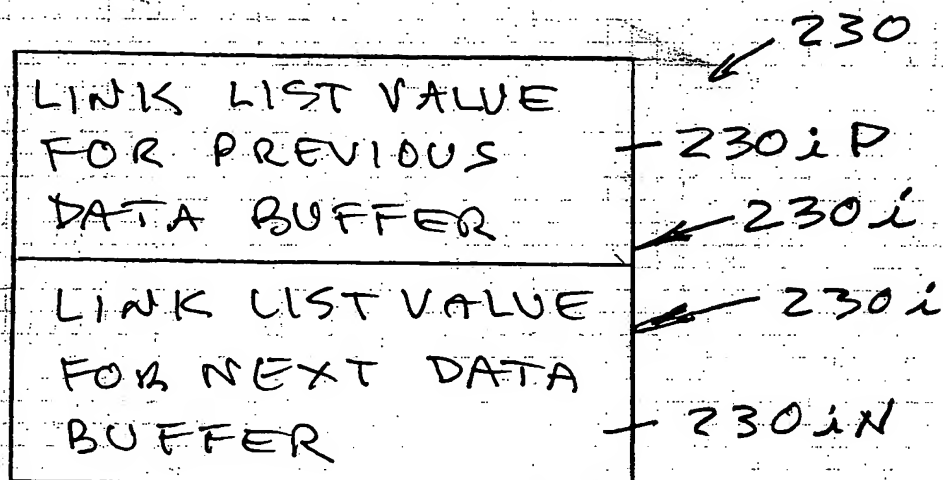 230
LINK LIST VALUE
FOR PREVIOUS
DATA BUFFER
230iP
230i
LINK LIST VALUE
FOR NEXT DATA
BUFFER
230i
230iN